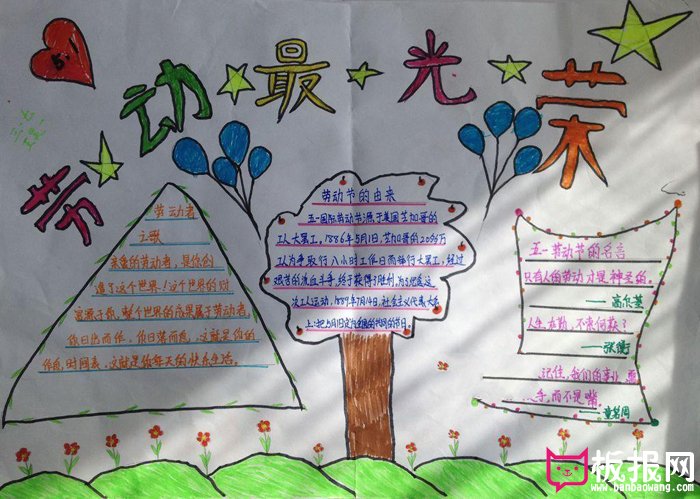 5.1
劳动最光荣
劳动者
之歌
亲爱的劳动者，是你创
造了这个世界！这个世界的财
富源于你，整个世界的成果属于劳动者，
你日出而作，你日落而息，这就是你的
作息时间表，这就是你每天的快乐生活。
劳动节的由来
五一国际劳动节源于美国芝加哥的
工人大罢工，1886年5月1日，芝加哥的20多万
工人为争取行八小时工作日而举行大罢工，经过
艰苦的流血斗争，终于获得了胜利，为纪念这
次工人运动，1889年7月14日，社会主义代表大会
上，把5月1日定为
的节日。
五一劳动节的名言
只有人的劳动才是神圣的。
——高尔基
人生在勤，不索何获？
——张衡
记住，我们的事业，要
手，而不是嘴。
——童第周
板报网
www.banbaowang.com